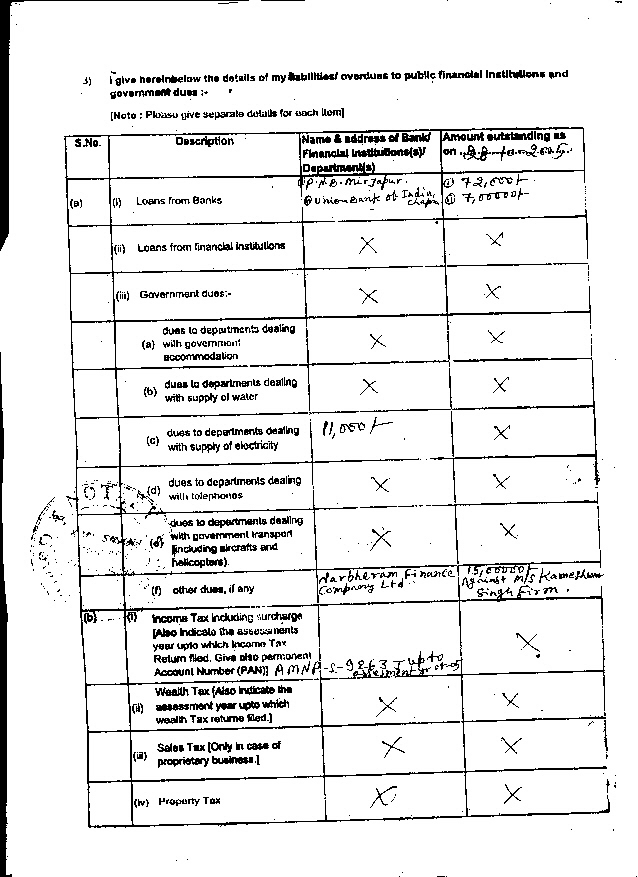 3) I give hereinbelow the details of my liabilities/ overdues to public financial institutions and
government dues :-
[Note : Please give separate details for each item]
S.No. Description Name & address of Bank/ Financial Institutions(s)/ Department(s) Amount outstanding as on 28-10-2005.
(a) (i) Loans from Banks P.N.B. Mirzapur. 72,000/-
Union Bank of India, Chapra 7,00000/-
(ii) Loans from financial institutions X X
(iii) Government dues:- X X
(a) dues to departments dealing with government accommodation X X
(b) dues to departments dealing with supply of water X X
(c) dues to departments dealing with supply of electricity 11,000/- X
(d) dues to departments dealing with telephones X X
(e) dues to departments dealing with government transport (including aircrafts and helicopters). X X
(f) other dues, if any Narbheram Finance Company Ltd 15,00000/ Against M/s Kameshwar Singh Firm.
(b) (i) Income Tax including surcharge [Also indicate the assessments year upto which Income Tax Return filed. Give also permanent Account Number (PAN)] upto assessment X
(ii) Wealth Tax [Also indicate the assessment year upto which wealth Tax returne filed.] X X
(iii) Sales Tax [Only in case of proprietary business.] X X
(iv) Property Tax X X